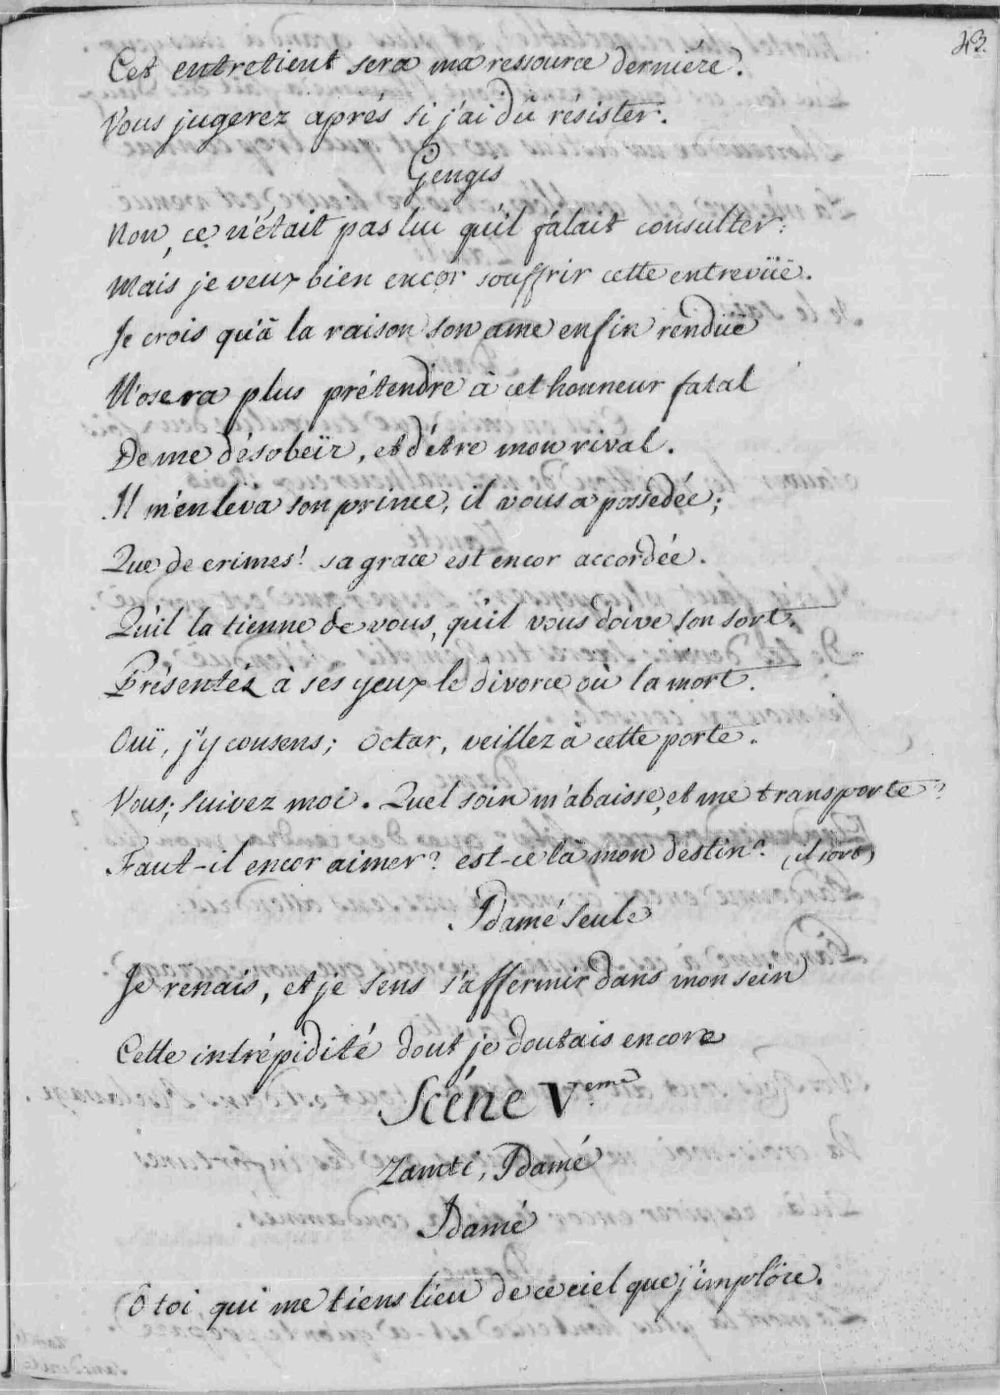 43.
Cet entretient sera ma ressource derniere.
Vous jugerez aprés si j'ai dû résister.
Gengis
Non, ce n'était pas lui qu'il falait consulter:
Mais je veux bien encor souffrir cette entrevüe.
Je crois qu'à la raison son ame enfin rendüe
N'osera plus prétendre à cet honneur fatal
De me désobeïr, et d'être mon rival.
Il m'enleva son prince, il vous a possedée;
Que de crimes! sa grace est encor accordée.
Qu'il la tienne de vous, qu'il vous doive son sort.
Présentéz à ses yeux le divorce où la mort.
Ouï, j'y consens; Octar, veillez à cette porte.
Vous; suivez moi. Quel soin m'abaisse, et me transporte?
Faut-il encor aimer? est-ce là mon destin? (il sort)
Idamé seule
Je renais, et je sens s'affermir dans mon sein
Cette intrépidité dont je doutais encore
Scéne V.eme
Zamti, Idamé
Idamé
Ô toi qui me tiens lieu de ce ciel que j'implôre.